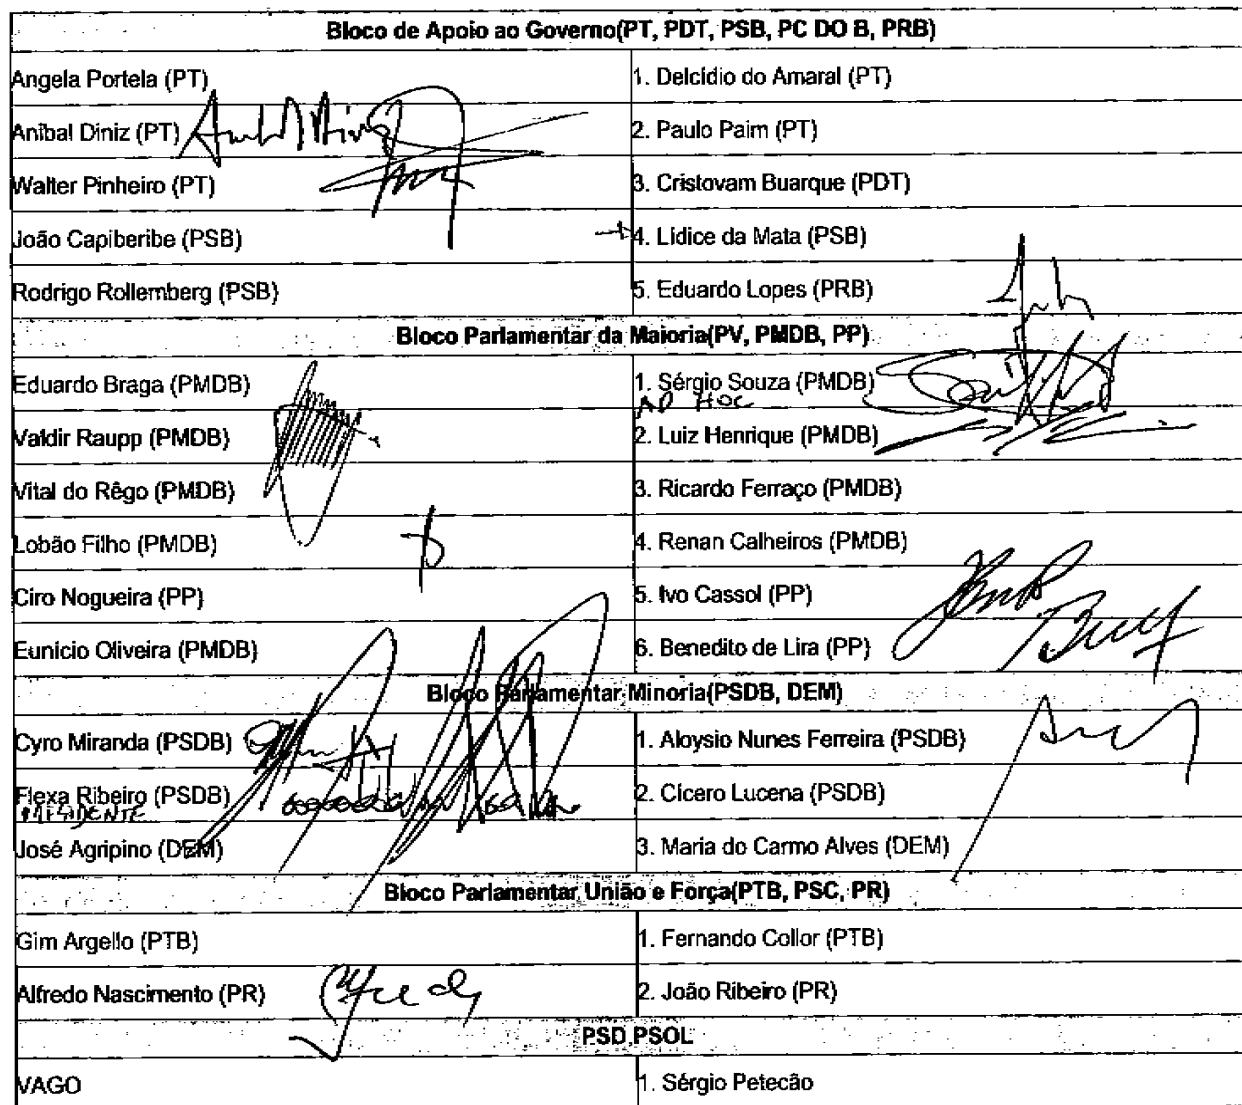 Bloco de Apoio ao Governo(PT, PDT, PSB, PC DO B, PRB)
Angela Portela (PT)
1. Delcídio do Amaral (PT)
Aníbal Diniz (PT)
2. Paulo Paim (PT)
Walter Pinheiro (PT)
3. Cristovam Buarque (PDT)
João Capiberibe (PSB)
4. Lídice da Mata (PSB)
Rodrigo Rollemberg (PSB)
5. Eduardo Lopes (PRB)
Bloco Parlamentar da Maioria(PV, PMDB, PP)
Eduardo Braga (PMDB)
1. Sérgio Souza (PMDB)
AD HOC
Valdir Raupp (PMDB)
2. Luiz Henrique (PMDB)
Vital do Rêgo (PMDB)
3. Ricardo Ferraço (PMDB)
Lobão Filho (PMDB)
4. Renan Calheiros (PMDB)
Ciro Nogueira (PP)
5. Ivo Cassol (PP)
Eunício Oliveira (PMDB)
6. Benedito de Lira (PP)
Bloco Parlamentar Minoria(PSDB, DEM)
Cyro Miranda (PSDB)
1. Aloysio Nunes Ferreira (PSDB)
Flexa Ribeiro (PSDB)
PRESIDENTE
2. Cícero Lucena (PSDB)
José Agripino (DEM)
3. Maria do Carmo Alves (DEM)
Bloco Parlamentar União e Força(PTB, PSC, PR)
Gim Argello (PTB)
1. Fernando Collor (PTB)
Alfredo Nascimento (PR)
2. João Ribeiro (PR)
PSD PSOL
VAGO
1. Sérgio Petecão